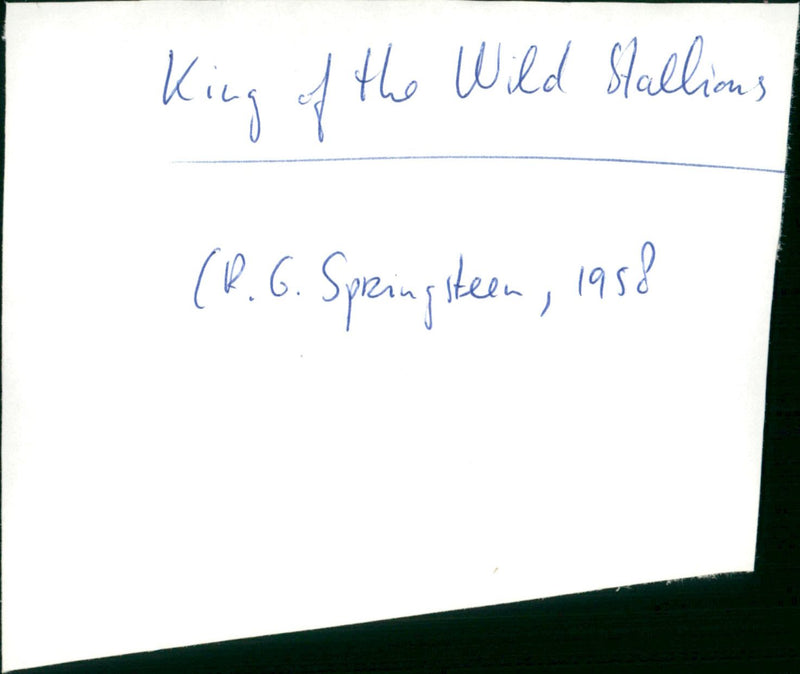 King of the Wild Stallions
(R. G. Springsteen, 1958